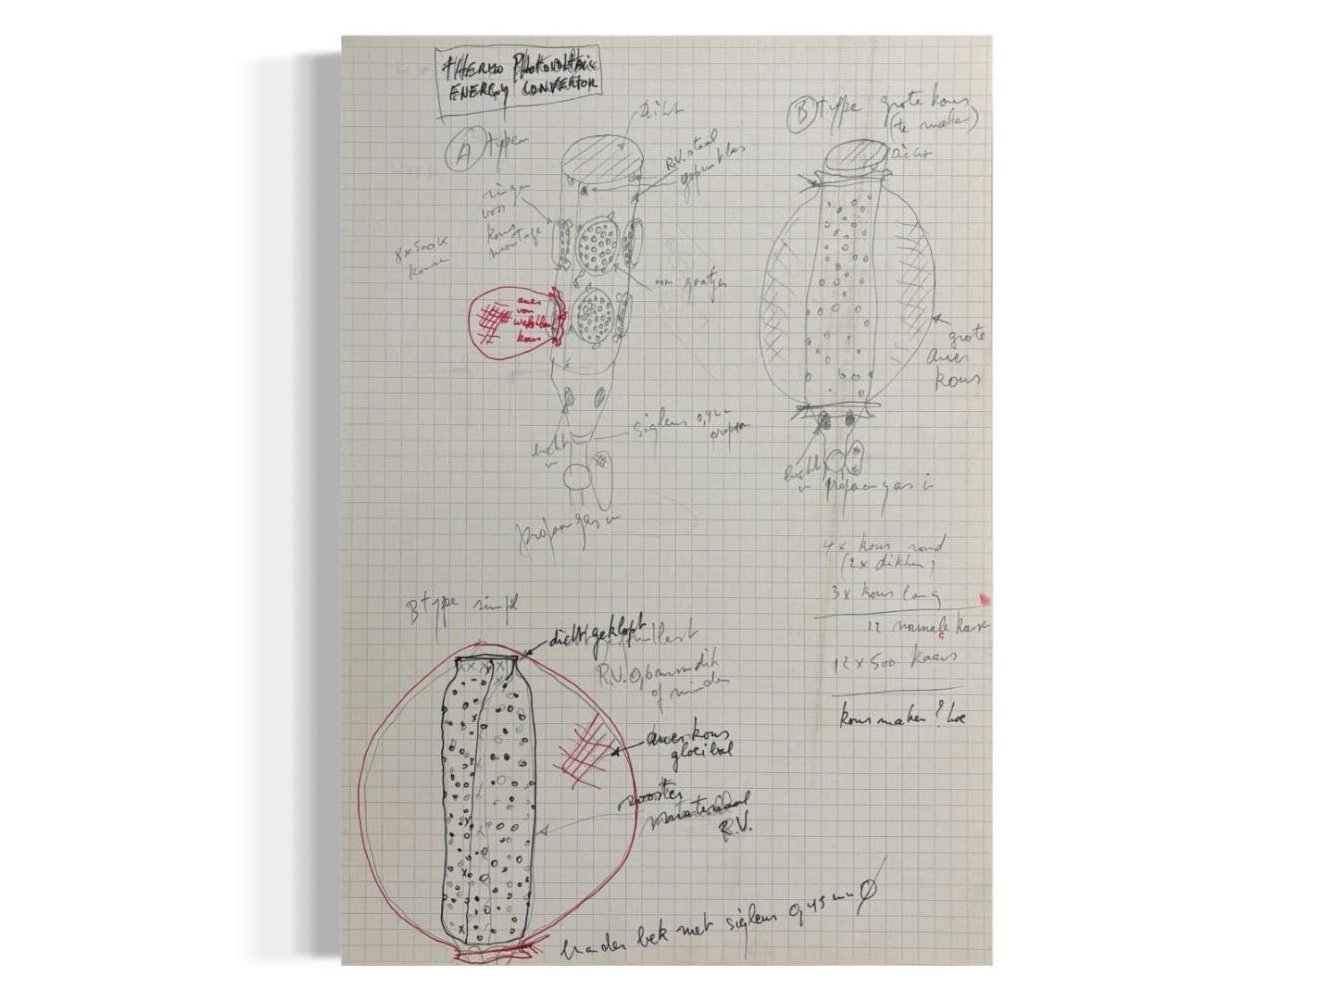 tHERMO PHOtOVOLtAiC
ENERGY CONVERTOR
A type
dicht
R.V. staal
ringen
voor
kous
montage
8 x 500K
kousen
mm gaatjes
auer
van
kous
lucht
in
propaan gas in
B type grote kous
(te maken)
dicht
grote
auer
kous
lucht
in
propaan gas in
4x kous rond
(2x dikker)
3x kous lang
12 normale kous
12 x 500 kaars
kous maken? hoe
B type simpel
dicht geklopt
R.V. 0,6 mm dik
of minder
auerkous
gloeibol
rooster
R.V.
brander bek met 0,45 mm Ø